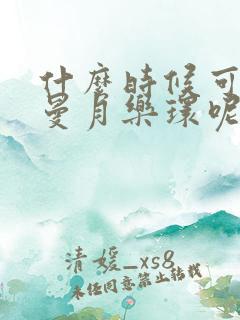 什麼時候可
曼月樂環呢
清媛_xs8
未经同意禁止转载